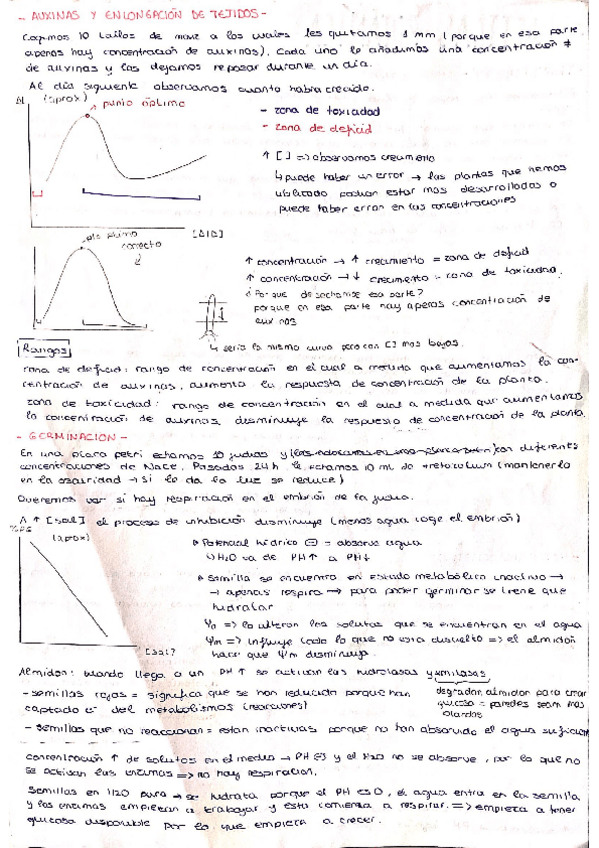 - AUXINAS Y ENLONGACIÓN DE TEJIDOS -
Cogemos 10 tallos de maiz a los cuales les quitamos 1 mm (porque en esa parte
apenas hay concentración de auxinas). Cada uno le añadimos una concentración ≠
de auxinas y las dejamos reposar durante un día.
Al día siguiente observamos cuanto habia crecido.
Δl (aprox) punto óptimo
- zona de toxicidad
- zona de deficid
↑ [ ] => observamos crecimiento
↳ puede haber un error → las plantas que hemos
utilizado podian estar mas desarrolladas o
puede haber error en las concentraciones
[AIA]
pto optimo
correcto
↑ concentración → ↑ crecimiento = zona de deficid
↑ concentración → ↓ crecimiento = zona de toxicidad.
¿Por que desechamos esa parte?
porque en esa parte hay apenas concentración de
auxinas
↳ seria la misma curva pero con [ ] mas bajas.
Rangos
zona de deficid: rango de concentración en el cual a medida que aumentamos la con-
centración de auxinas, aumenta la respuesta de concentración de la planta.
zona de toxicidad: rango de concentración en el cual a medida que aumentamos
la concentración de auxinas, disminuye la respuesta de concentración de la planta.
- GERMINACION -
En una placa petri echamos 10 judias y con diferentes
concentraciones de NaCl. Pasadas 24h le echamos 10 ml de (mantenerlo
en la oscuridad → si le da la luz se reduce)
Queremos ver si hay respiración en el embrión de la judia.
A ↑ [sal] el proceso de inhibición disminuye (menos agua coge el embrión)
(aprox)
Potencial hídrico ⊖ = absorve agua
↳ H2O va de PH↑ a PH↓
Semilla se encuentra en estado metabólico inactivo →
→ apenas respira → para poder germinar se tiene que
hidratar
Ψo => lo alteran los solutos que se encuentran en el agua
Ψm => influye todo lo que no esta disuelto => el almidón
hace que Ψm disminuya.
[sal]
Almidon: cuando llega a un PH↑ se activan las hidrolasas y amilasas
degradan almidon para crear
glucosa = paredes sean mas
blandas
- semillas rojas = significa que se han reducido porque han
captado e⁻ del metabolismos (reacciones)
- semillas que no reaccionan = estan inactivas porque no han absorvido el agua suficien
concentración ↑ de solutos en el medio → PH ⊖ y el H2O no se absorve, por lo que no
se activan las enzimas => no hay respiración.
Semillas en H2O pura → se hidrata porque el PH es 0, el agua entra en la semilla
y las enzimas empiezan a trabajar y esta comienza a respirar. => empieza a tener
glucosa disponible por lo que empieza a crecer.